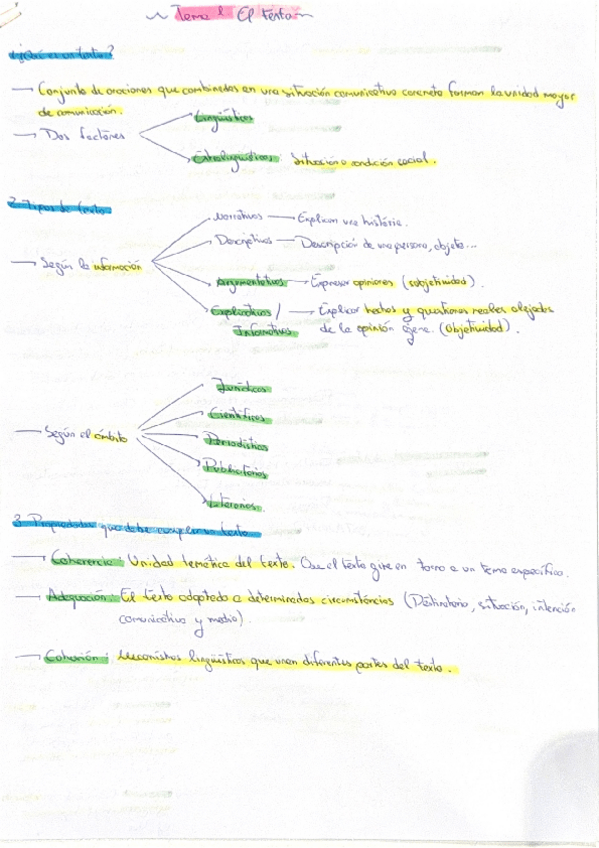 ~ Tema 1. El texto ~
1. ¿Qué es un texto?
→ Conjunto de oraciones que combinadas en una situación comunicativa concreta forman la unidad mayor
de comunicación.
→ Dos factores
Lingüísticos
Extralingüísticos: Situación o condición social.
2. Tipos de texto
→ Según la información
Narrativos → Explican una historia.
Descriptivos → Descripción de una persona, objeto...
Argumentativos → Expresar opiniones (subjetividad).
Explicativos / → Explicar hechos y cuestiones reales alejados
Informativos de la opinión ajena. (Objetividad).
→ Según el ámbito
Jurídicos
Científicos
Periodísticos
Publicitarios
Literarios.
3. Propiedades que debe cumplir un texto
→ Coherencia: Unidad temática del texto. Que el texto gire en torno a un tema específico.
→ Adecuación: El texto adaptado a determinadas circunstancias (Destinatario, situación, intención
comunicativa y medio).
→ Cohesión: Mecanismos lingüísticos que unen diferentes partes del texto.